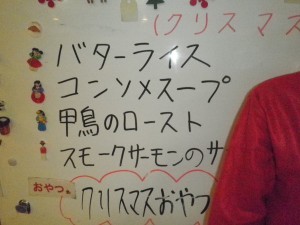 (クリスマス
バターライス
コンソメスープ
甲鳥のロースト
スモークサーモンのサ
おやつ
クリスマスおやつ